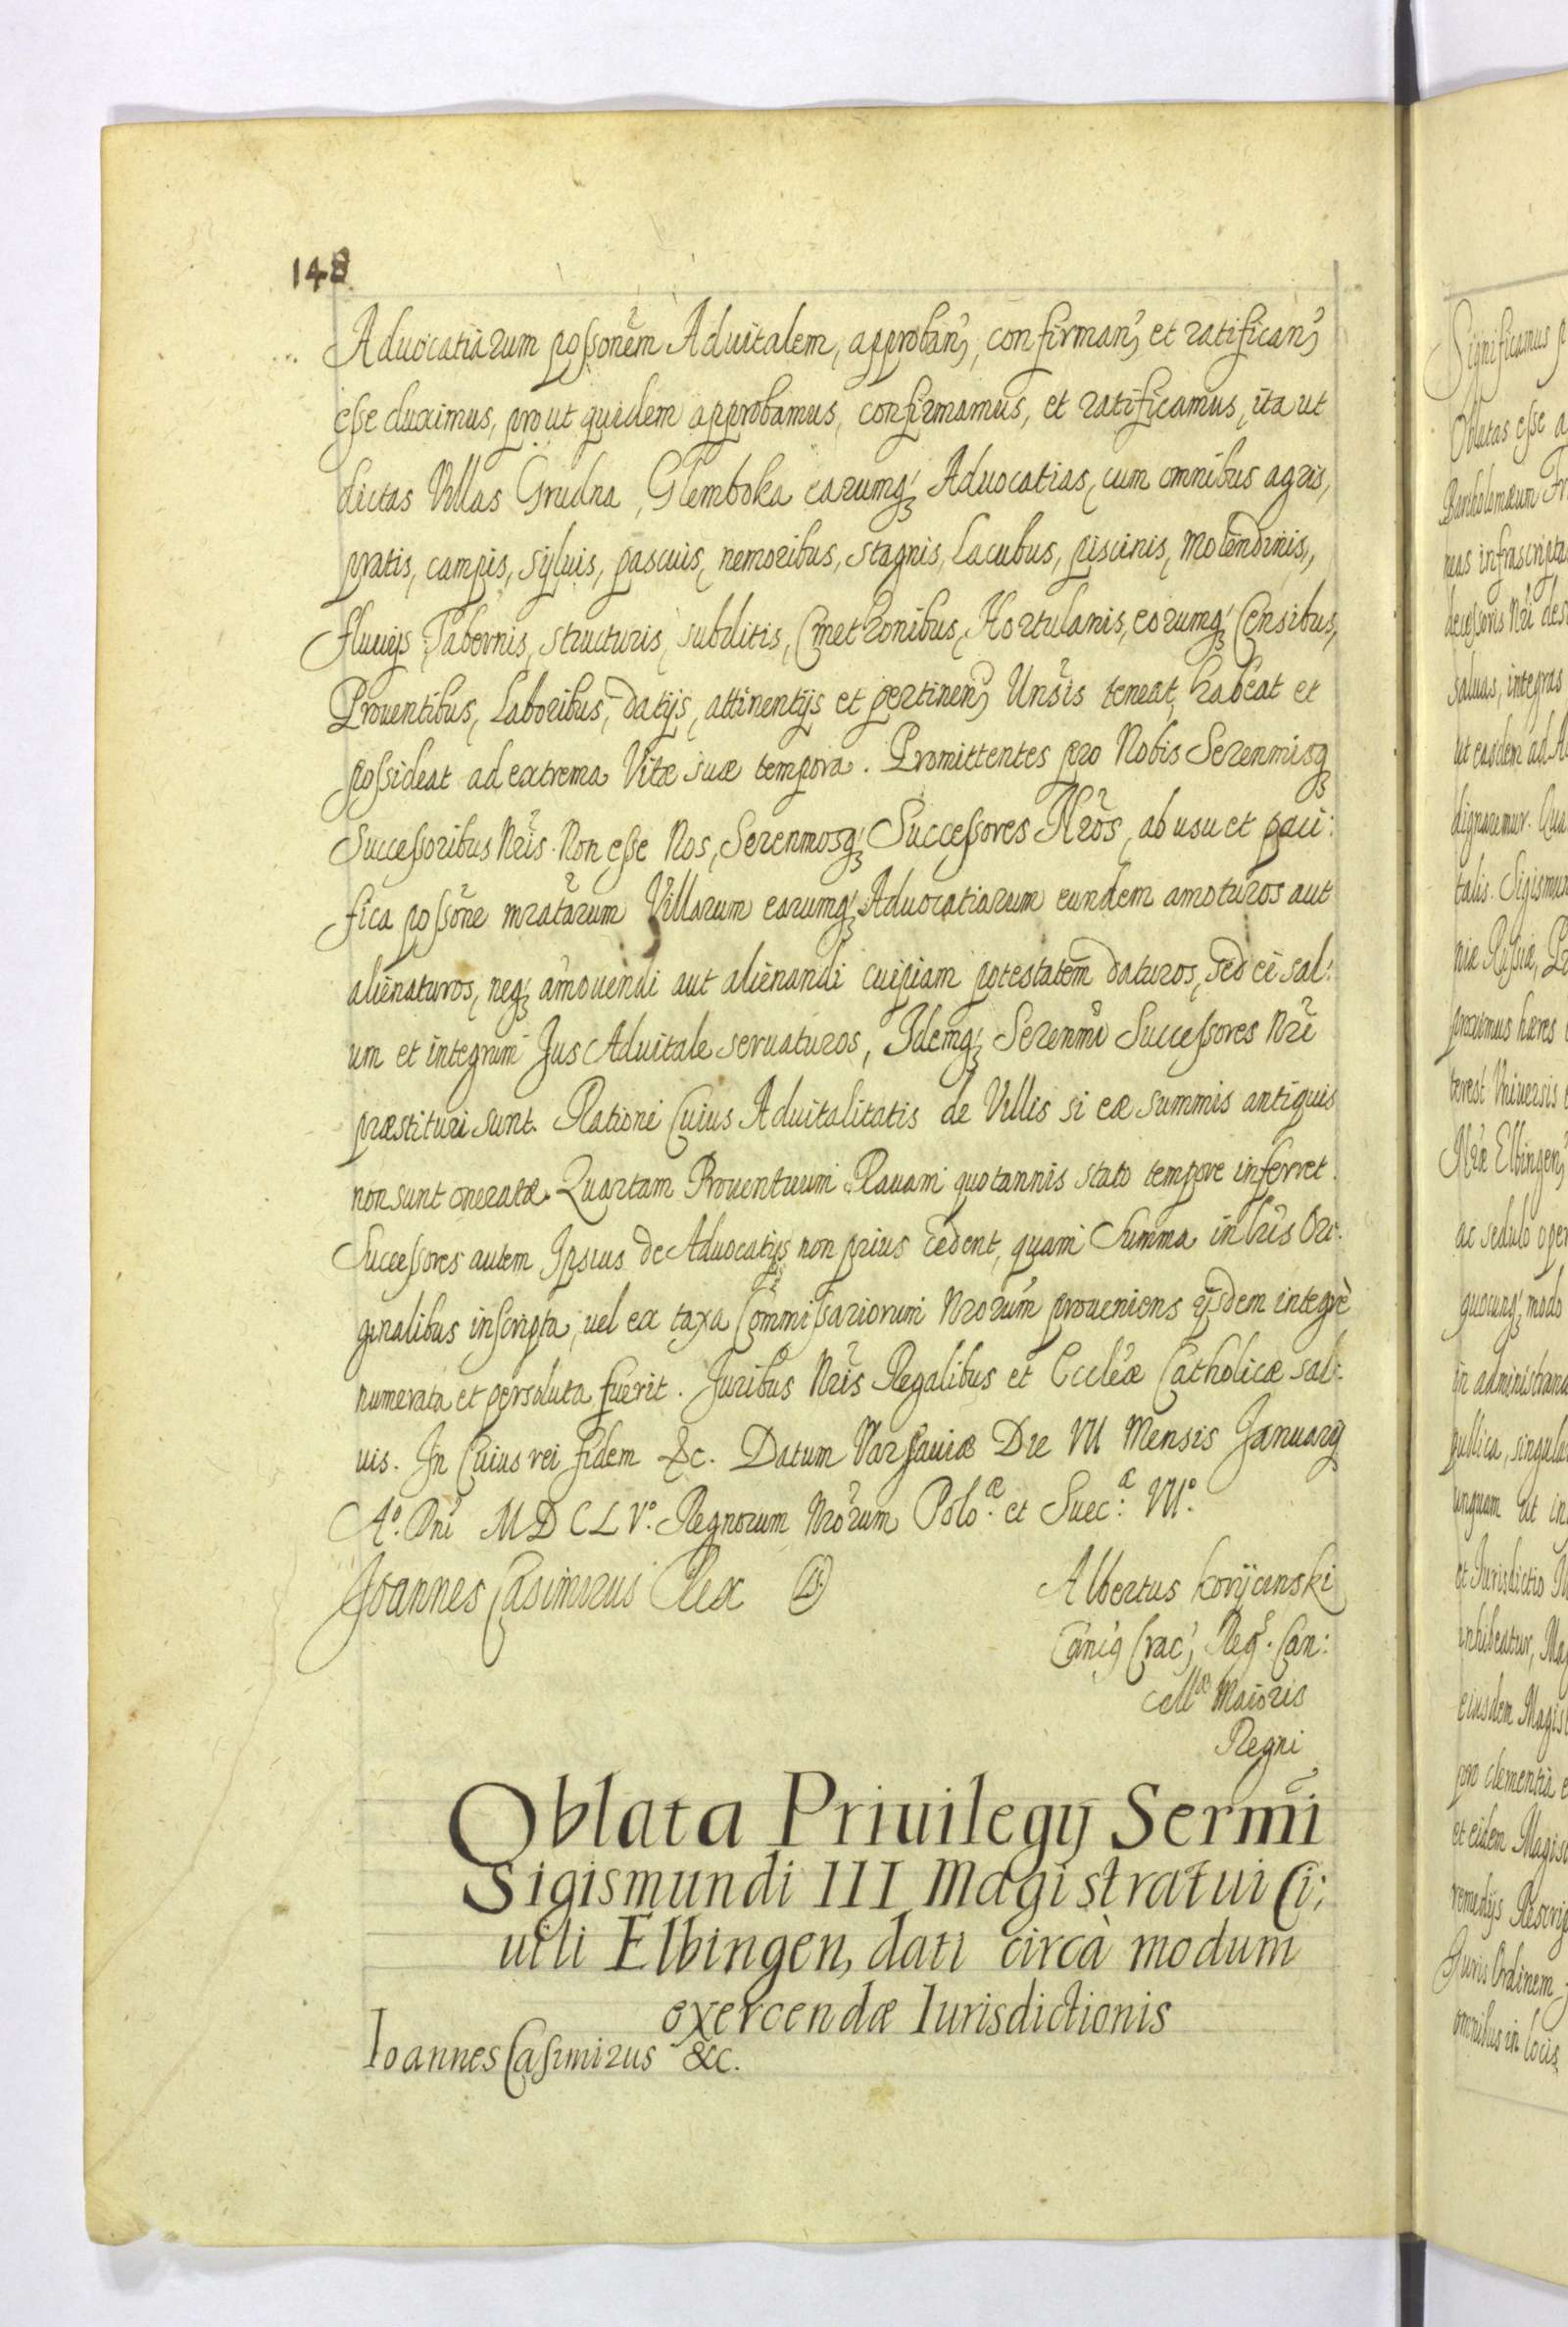 148
Aduocatiarum possonem Aduitalem, approban, confirman, et ratifican,
esse duximus, prout quidem approbamus, confirmamus, et ratificamus, ita ut
dictas Villas Grudna, Glemboka earumq, Aduocatias, cum omnibus agris,
pratis, campis, syluis, pascuis, nemoribus, stagnis, Lacubus, piscinis, Molendinis,
fluuijs, Tabernis, structuris, subditis, Cmethonibus, Hortulanis, eorumq, Censibus,
Prouentibus, Laboribus, datijs, attinentijs et pertinen, Unsis teneat, habeat et
possideat ad extrema Vitæ suæ tempora. Promittentes pro Nobis Serenmisq
Successoribus Nris. Non esse Nos, Serenmosq, Successores Nros, ab usu et paci:
fica possone mratarum Villarum earumq, Aduocatiarum eundem amoturos aut
alienaturos, neq, amouendi aut alienandi cuipiam potestatem daturos, sed ei sal:
um et integrum Jus Aduitale seruaturos, Idemq, Serenmi Successores Nri
præstituri sunt. Rationi Cuius Aduitalitatis de Villis si eæ summis antiquis
non sunt oneratæ. Quartam Prouentuum Rauam quotannis stato tempore inferret.
Successores autem Ipsius de Aduocatijs non prius cedent, quam Summa in lris Ori:
ginalibus inscripta, uel ex taxa Commissariorum Nrorum proueniens ijsdem integrè
numerata et persoluta fuerit. Juribus Nris Regalibus et Eccleæ Catholicæ sal:
uis. In Cuius rei fidem &c. Datum Varsauiæ Die VII Mensis Januarij
Aº. Dni MDCLVº. Regnorum Nrorum Poloæ. et Suecæ: VIIº.
Joannes Casimirus Rex LS
Albertus Koryćinski
Canicq Crac, Regs. Can:
cellæ Maioris
Regni
Oblata Priuilegij Sermi
Sigismundi III Magistratui Ci:
uili Elbingen, dati circà modum
exercendæ Iurisdictionis
Ioannes Casimirus &c.
Significamus
Oblatas esse
Bartholomæum
neas infrascriptas
salvas, integras
ut easdem ad
dignaremur.
talis. Sigismun
niæ Russiæ,
proximus hæres
Vniuersis
Nræ Elbingen,
ac sedulo
quocunq, modo
in administranda
publica, singula
unquam ut in
et Jurisdictio
inhibeatur,
eiusdem Magist
pro clementia
et eidem Magist
remedijs
Juris Ordinem
omnibus in locis